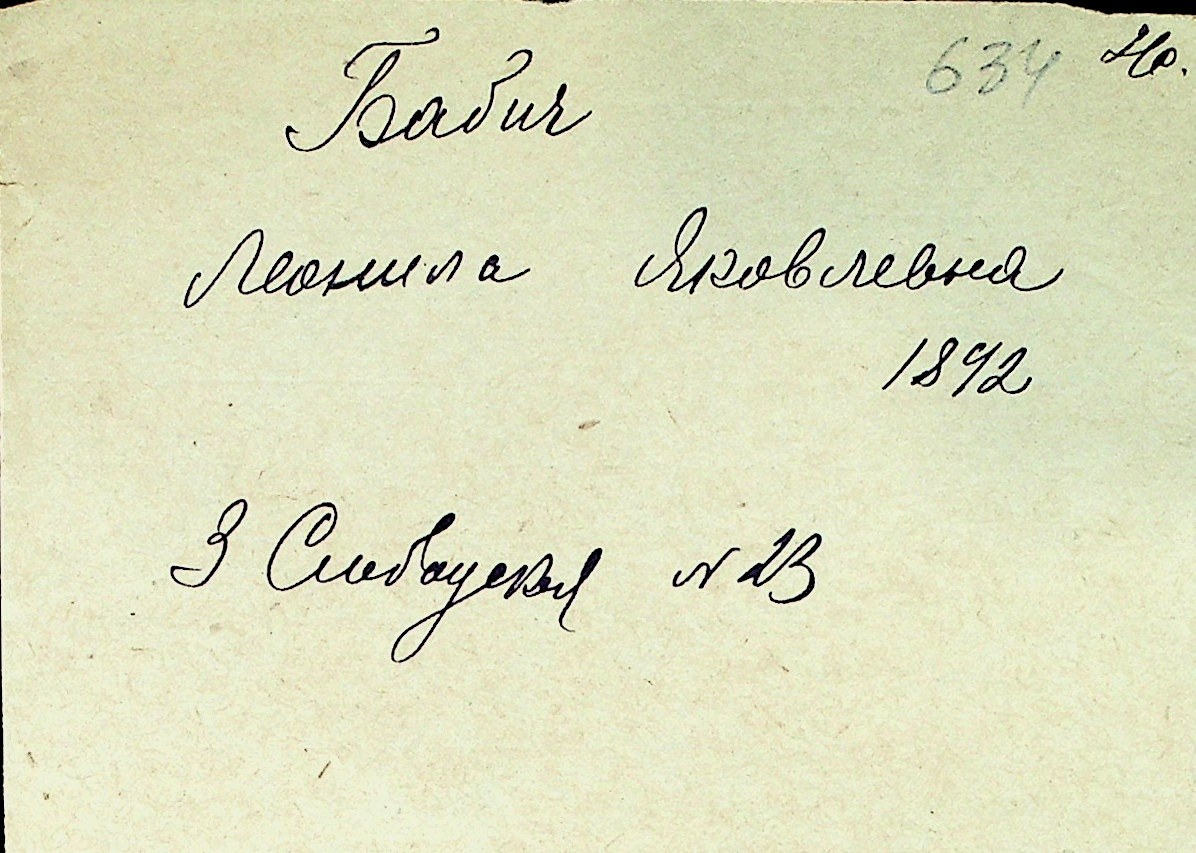 634
Бабич
Леонила Яковлевна
1892
3 Слободская N 23